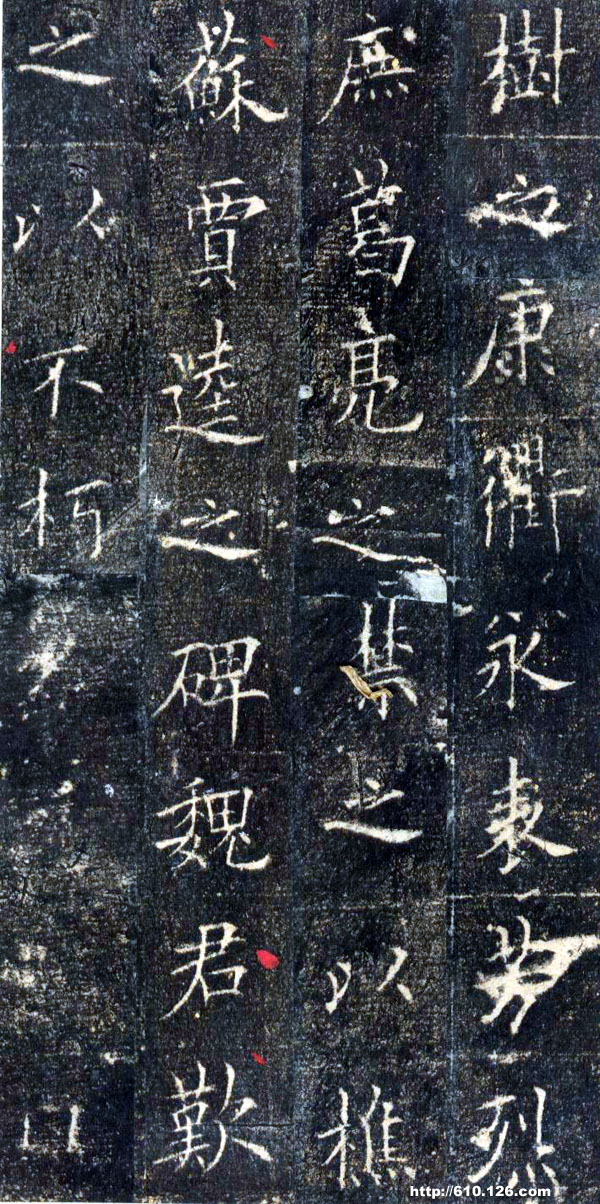 樹之康衢永表芳烈
庶葛亮之禁之以樵
蘇賈逵之碑魏君歎
之以不朽口
http://610.126.com